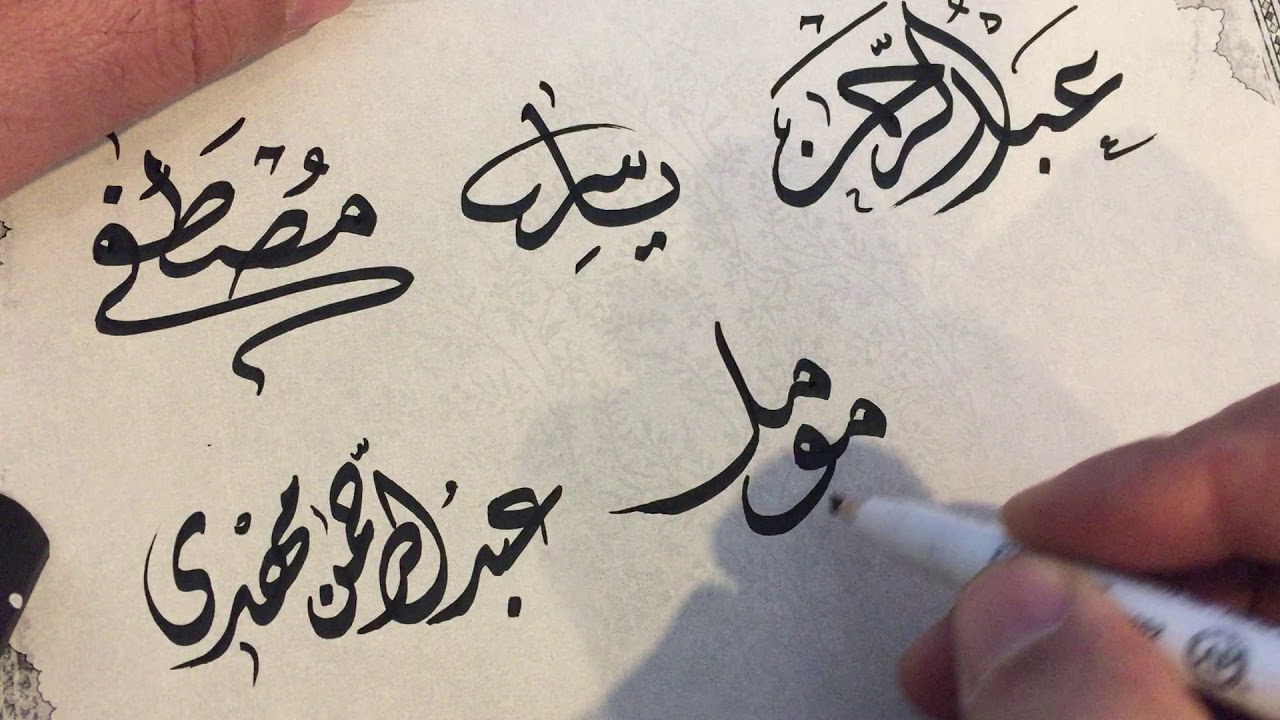 عَبْدُ الرَّحْمٰن ياسِر مُصْطَفى
مومل
عبدُ الرّحمن مهْدي